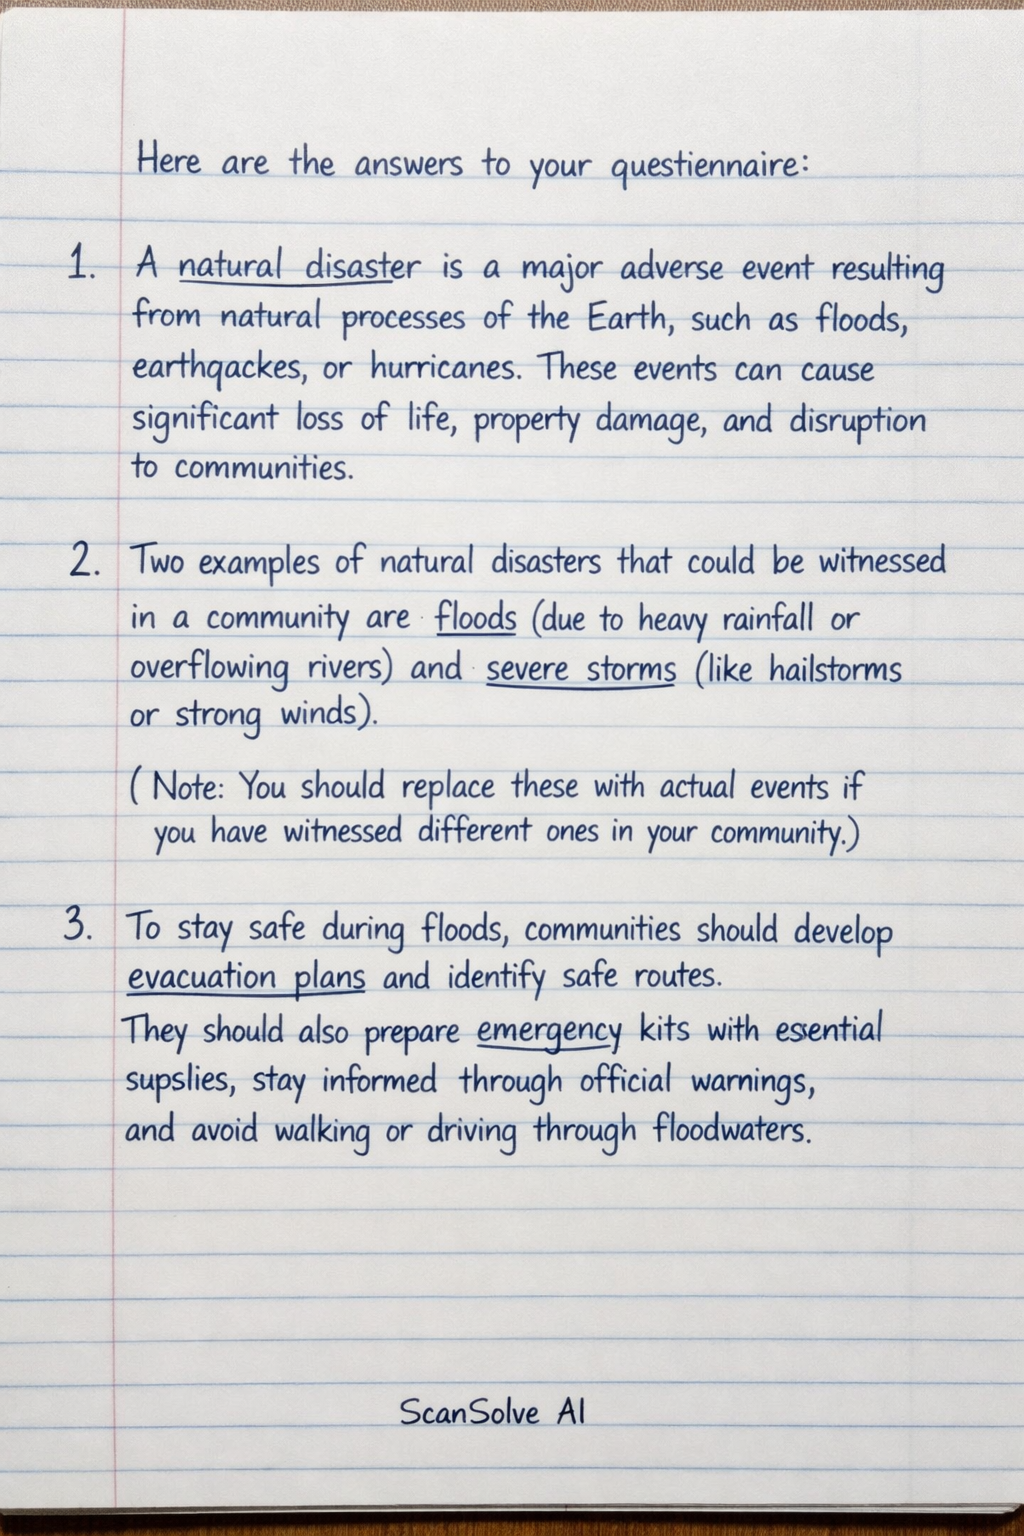 Here are the answers to your questiennaire:
1. A natural disaster is a major adverse event resulting
from natural processes of the Earth, such as floods,
earthqackes, or hurricanes. These events can cause
significant loss of life, property damage, and disruption
to communities.
2. Two examples of natural disasters that could be witnessed
in a community are floods (due to heavy rainfall or
overflowing rivers) and severe storms (like hailstorms
or strong winds).
(Note: You should replace these with actual events if
you have witnessed different ones in your community.)
3. To stay safe during floods, communities should develop
evacuation plans and identify safe routes.
They should also prepare emergency kits with essential
supslies, stay informed through official warnings,
and avoid walking or driving through floodwaters.
ScanSolve AI